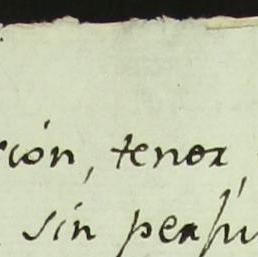 ción, tenor
sin perju